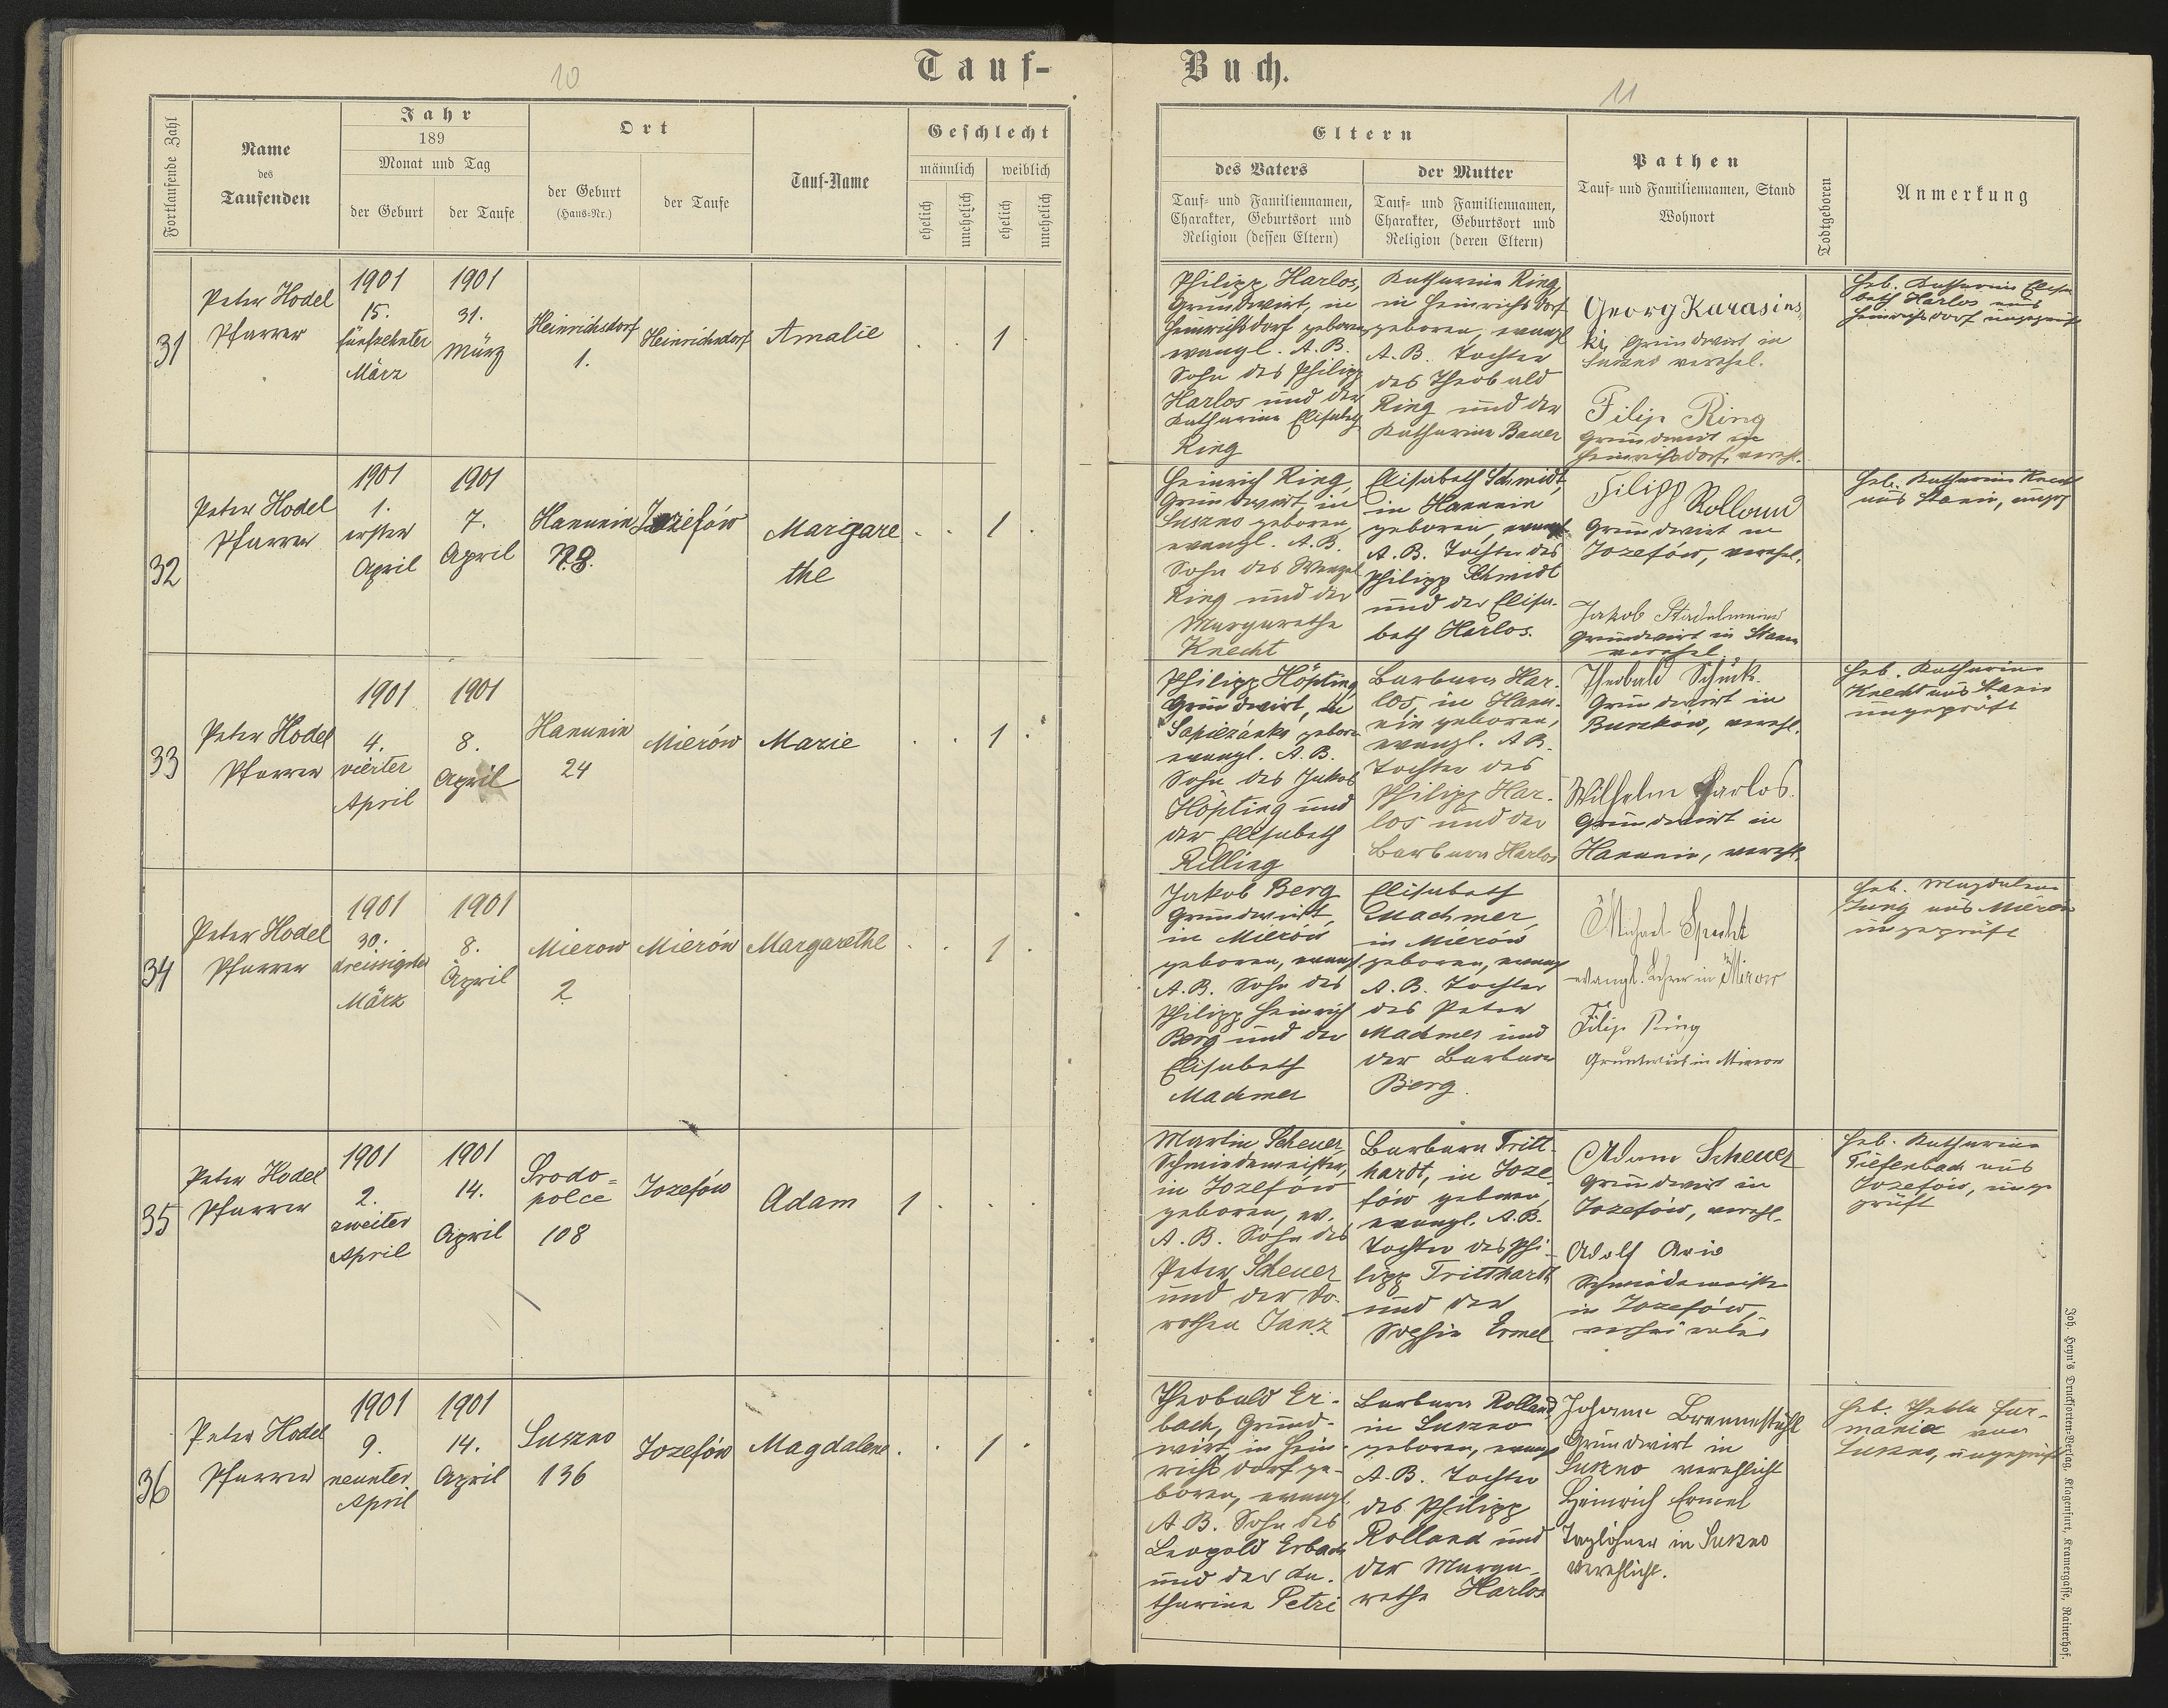 10
Tauf-
Buch.
11
Fortlaufende Zahl
Name
des
Taufenden
Jahr
189
Monat und Tag
der Geburt
der Taufe
Ort
der Geburt
(Haus-Nr.)
der Taufe
Tauf-Name
Geschlecht
männlich
weiblich
ehelich
unehelich
ehelich
unehelich
Eltern
des Vaters
Tauf- und Familiennamen,
Charakter, Geburtsort und
Religion (dessen Eltern)
der Mutter
Tauf- und Familiennamen,
Charakter, Geburtsort und
Religion (deren Eltern)
Pathen
Tauf- und Familiennamen, Stand
Wohnort
Todtgeboren
Anmerkung
31
Peter Hodel
Pfarrer
1901
15.
fünfzehnter
März
1901
31.
März
Heinrichsdorf
1.
Heinrichsdorf
Amalie
1
Philipp Harlos,
Grundwirt, in
Heinrichsdorf geboren
evangl. A.B.
Sohn des Philipp
Harlos und der
Katharina Elisabeth
Ring
Katharina Ring,
in Heinrichsdorf
geboren, evangl
A.B. Tochter
des Theobald
Ring und der
Katharina Bauer
Georg Karasins
ki, Grundwirt in
Suszno verehel.
Filip Ring
Grundwirt in
Heinrichsdorf, vereh.
Heb. Katharina Elisa
beth Harlos aus
Heinrichsdorf ungeprüft
32
Peter Hodel
Pfarrer
1901
1.
erster
April
1901
7.
April
Hanunin
N. 8.
Jozefów
Margare
the
1
Heinrich Ring,
Grundwirt, in
Suszno geboren,
evangl. A.B.
Sohn des Wenzel
Ring und der
Margarethe
Knecht
Elisabeth Schmidt,
in Hanunin
geboren, evangl
A.B. Tochter des
Philipp Schmidt
und der Elisa-
beth Harlos.
Filipp Rolland
Grundwirt in
Jozefów, verehel.
Jakob Stadelmeier
Grundwirt in Stanin
verehel.
Heb. Katharina Knecht
aus Stanin, ungepr
33
Peter Hodel
Pfarrer
1901
4.
vierter
April
1901
8.
April
Hanunin
24
Mierów
Marie
1
Philipp Höpting
Grundwirt, in
Sapiezanka geboren
evangl. A.B.
Sohn des Jakob
Höpting und
der Elisabeth
Rilling
Barbara Har-
los, in Hanu-
nin geboren,
evangl. A.B.
Tochter des
Philipp Har-
los und der
Barbara Harlos
Theobald Schuck.
Grundwirt in
verehl.
Wilhelm Harlos.
Grundwirt in
Hanunin, verehl.
Heb. Katharina
Knecht aus Stanin
ungeprüft
34
Peter Hodel
Pfarrer
1901
30.
dreissigster
März
1901
8.
April
Mierow
2
Mierów
Margarethe
1
Jakob Berg
Grundwirt,
in Mierów
geboren, evangl
A.B. Sohn des
Philipp Heinrich
Berg und der
Elisabeth
Machmer
Elisabeth
Machmer,
in Mierów
geboren, evang
A.B. Tochter
des Peter
Machmer und
der Barbara
Berg
Michael Specht
evangl. Lehrer in Mirow
Filip Ring
Grundwirt in Mierow
Heb. Magdalena
Jung aus Mierów
ungeprüft
35
Peter Hodel
Pfarrer
1901
2.
zweiter
April
1901
14.
April
Srodo=
polce
108
Jozefów
Adam
1
Martin Scheuer,
Schmiedemeister,
in Jozefów
geboren, ev.
A.B. Sohn des
Peter Scheuer
und der Do-
rothea Janz
Barbara Tritt-
hardt, in Joze
fów geboren,
evangl. A.B.
Tochter des Phi-
lipp Tritthardt
und der
Sophie Ermel
Adam Scheuer
Grundwirt in
Jozefów, verehl.
Adolf
Schmiedemeister
in Jozefów,
verheiratet
Heb. Katharina
Tiefenbach aus
Jozefów, unge
prüft
36
Peter Hodel
Pfarrer
1901
9.
neunter
April
1901
14.
April
Suszno
136
Jozefów
Magdalene
1
Theobald Er-
bach, Grund-
wirt, in Hein-
richsdorf ge-
boren, evangl.
A.B. Sohn des
Leopold Erbach
und der Ka-
tharina Petri
Barbara Rolland,
in Suszno
geboren, evang
A.B. Tochter
des Philipp
Rolland und
der Marga-
retha Harlos
Johann Brennestuhl
Grundwirt in
Suszno verehlicht
Heinrich Ermel
Taglöhner in Suszno
verehlicht.
Heb. Thekla Fur-
maniec von
Suszno, ungeprüft
Joh. Heyn's Drucksorten-Verlag, Klagenfurt, Kramergasse, Rainerhof.